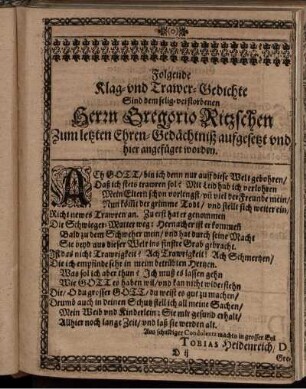 Folgende
Klag- und Trawer-Gedichte
Sind dem selig-verstorbenen
Herrn Gregorio Ritzschen
Zum letzten Ehren-Gedächtniß aufgesetzt und
hier angefüget worden.
ACh GOTT/ bin ich denn nur auff diese Welt gebohren/
Daß ich stets trawren sol? Mit Leid hab ich verlohren
Mein Eltern schon vorlengst/ vñ viel der Freunde mein/
Nun kömt der grimme Todt/ und stellt sich weiter ein/
Richt newes Trawren an. Zu erst hat er genommen
Die Schwieger-Mutter weg: Hernacher ist er kommen
Bald zu dem Schweher mein/ und hat durch seine Macht
Sie beyd aus dieser Welt ins finstre Grab gebracht.
Ist das nicht Trawrigkeit? Ach Trawrigkeit! Ach Schmertzen/
Die ich empfinde itzo in meim betrübten Hertzen.
Was sol ich aber thun? Ich muß es lassen gehn
Wie GOTT es haben wil/ und kan nicht widerstehn
Die/ O du grosser GOTT/ du weist es gut zu machen/
Drumb auch in deinen Schutz stell ich all meine Sachen/
Mein Weib und Kinderlein: Sie mit gesund erhalt/
Allhier noch lange Zeit/ und laß sie werden alt.
Aus schuldiger Condolentz machts in grosser Eil
TOBIAS Heidenreich, D
D ij